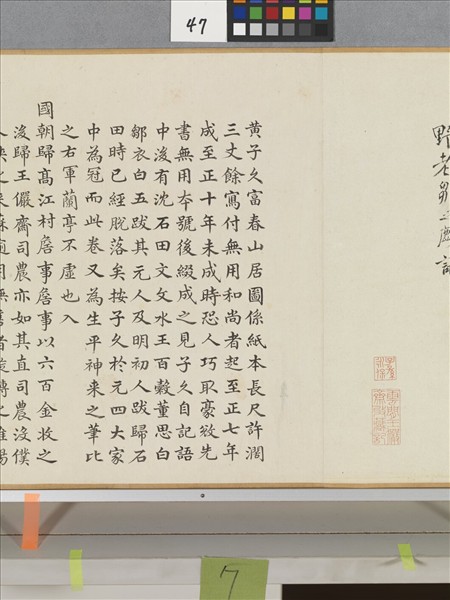 47
野老鄒之麟識
黃子久富春山居圖係紙本長尺許濶
三丈餘寫付無用和尚者起至正七年
成至正十年未成時恐人巧取豪敓先
書無用本號後綴成之見子久自記語
中後有沈石田文文水王百穀董思白
鄒衣白五跋其元人及明初人跋歸石
田時已經脫落矣按子久於元四大家
中為冠而此卷又為生平神来之筆比
之右軍蘭亭不虛也入
國朝歸高江村詹事詹事以六百金收之
後歸王儼齋司農亦如其直司農沒僕
7